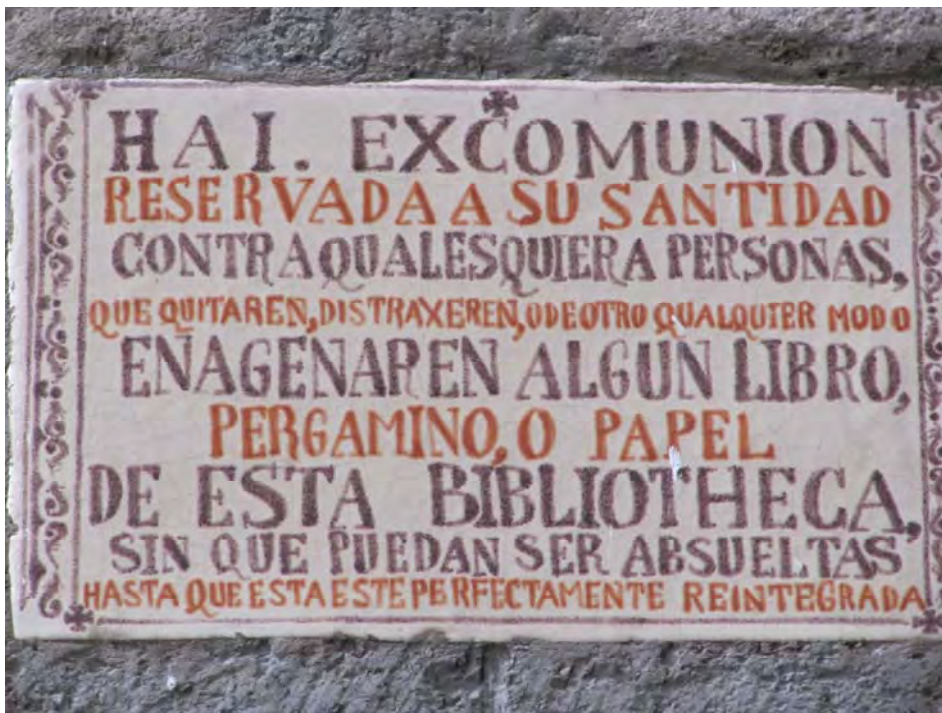 HAI. EXCOMUNION
RESERVADA A SU SANTIDAD
CONTRA QUALESQUIERA PERSONAS,
QUE QUITAREN, DISTRAXEREN, O DE OTRO QUALQUIER MODO
ENAGENAREN ALGUN LIBRO,
PERGAMINO, O PAPEL
DE ESTA BIBLIOTHECA,
SIN QUE PUEDAN SER ABSUELTAS
HASTA QUE ESTA ESTE PERFECTAMENTE REINTEGRADA